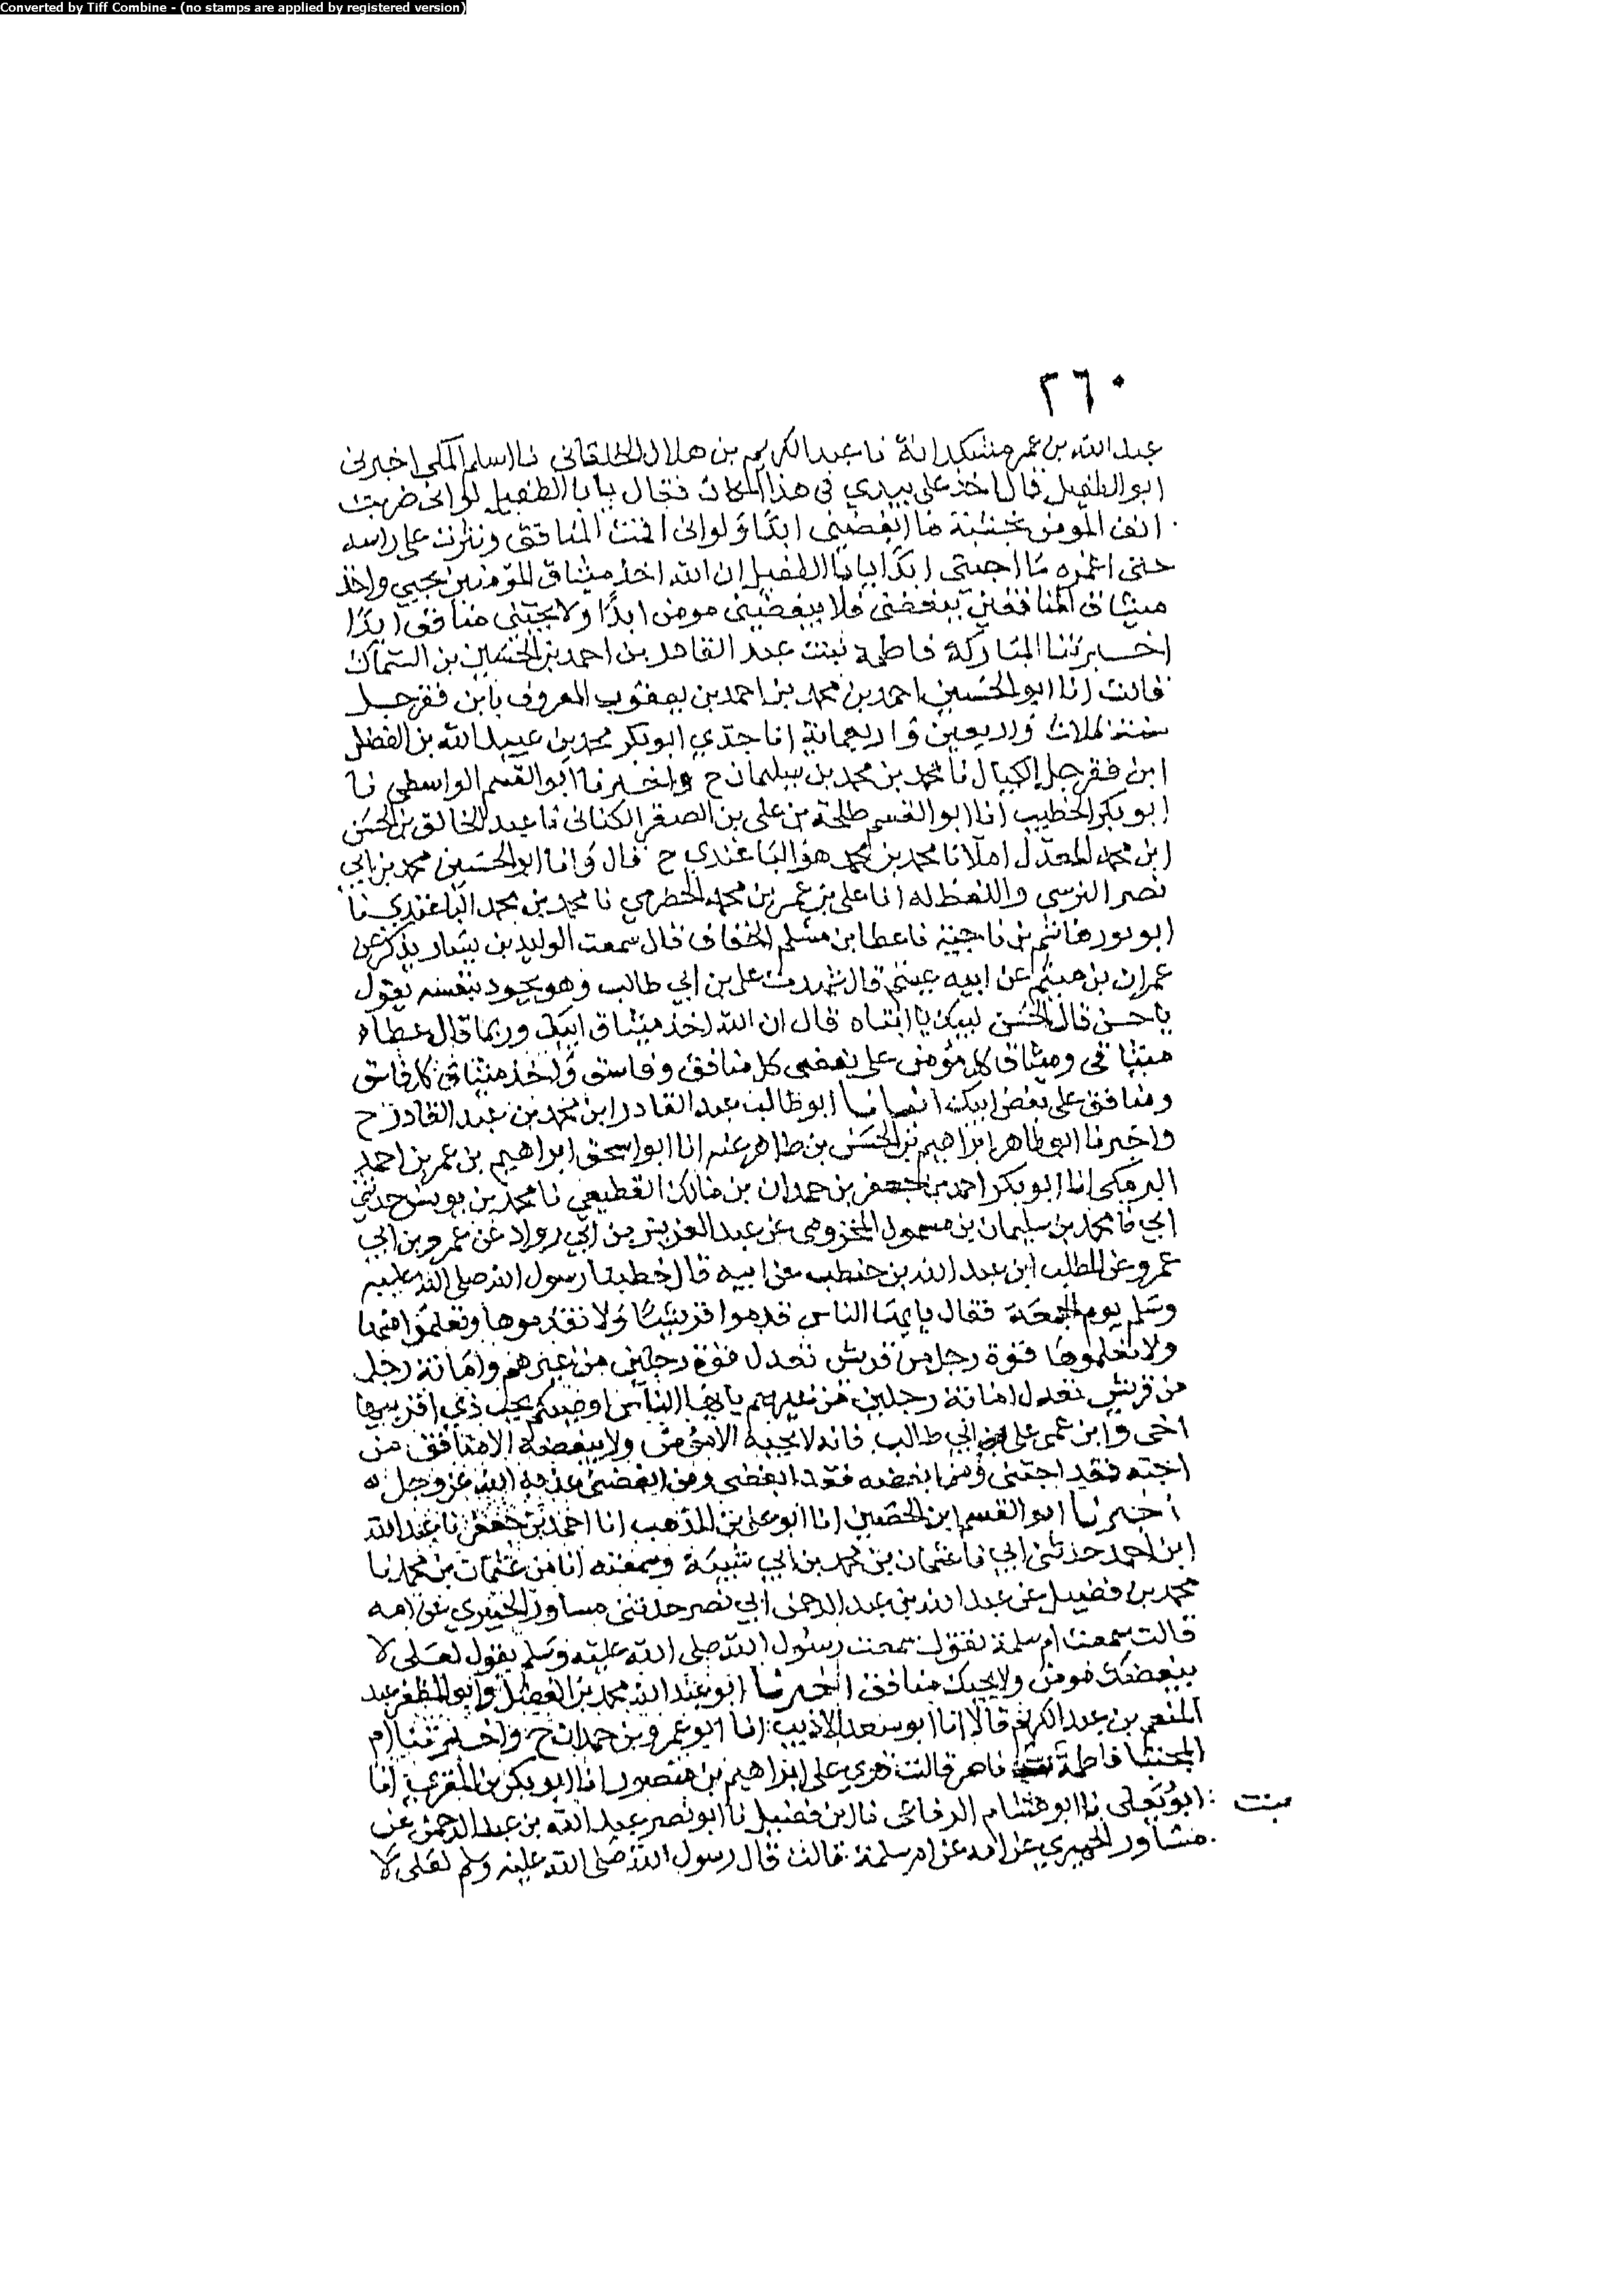 Converted by Tiff Combine - (no stamps are applied by registered version)
٢٦٠
عبد الله بن عمر مشكدانة نا عبد الكريم بن هلال الخلقاني نا اسلم المكي اخبرني
ابو الطفيل قال اخذ علي بيدي في هذا المكان فقال يابا الطفيل لو اني ضربت
انف المومن بخشبة ما ابغضني ابدا ولو اني اقمت المنافق ونثرت على راسه
حتى اغمره ما احبني ابدا يابا الطفيل ان الله اخذ ميثاق المؤمنين بحبي واخذ
ميثاق المنافقين ببغضي فلا يبغضني مومن ابدا ولا يحبني منافق ابدا
اخبرتنا المباركة فاطمة بنت عبد القادر بن احمد بن الحسين بن السماك
قالت انا ابو الحسين احمد بن محمد بن احمد بن يعقوب المعروف بابن قفرجل
سنة ثلاث واربعين واربعمائة انا جدي ابو بكر محمد بن عبيد الله بن الفضل
ابن قفرجل الكيال نا محمد بن محمد بن سليمان ح واخبرنا ابو القسم الواسطي نا
ابو بكر الخطيب انا ابو القسم طلحة بن علي بن الصقر الكتاني نا عبد الخالق بن الحسن
ابن محمد المعدل املا نا محمد بن محمد هو الباغندي ح قال وانا ابو الحسين محمد بن ابي
نصر النرسي واللفظ له انا علي بن عمر بن محمد الحضرمي نا محمد بن محمد الباغندي نا
ابو ثور هاشم بن ناجية نا عطا بن مسلم الخفاف قال سمعت الوليد بن يسار يذكر عن
عمران بن ميثم عن ابيه ميثم قال شهدت علي بن ابي طالب وهو يجود بنفسه يقول
يا حسن قال الحسن لبيك يا ابتاه قال ان الله اخذ ميثاق ابيك وربما قال عطاء
ميثاقي وميثاق كل مؤمن على بغض كل منافق وفاسق واخذ ميثاق كل فاسق
ومنافق على بغض ابيك انبانا ابو طالب عبد القادر ابن محمد بن عبد القادر ح
واخبرنا ابو طاهر ابراهيم بن الحسن بن طاهر عنه انا ابو اسحق ابراهيم بن عمر بن احمد
البرمكي انا ابو بكر احمد بن جعفر بن حمدان بن مالك القطيعي نا محمد بن يونس حدثني
ابي نا محمد بن سليمان بن مسمول المخزومي عن عبد العزيز بن ابي رواد عن عمرو بن ابي
عمرو عن المطلب ابن عبد الله بن حنطب عن ابيه قال خطبنا رسول الله صلى الله عليه
وسلم يوم الجمعة فقال يايها الناس قدموا قريشا ولا تقدموها وتعلموا منها
ولا تعلموها قوة رجل من قريش تعدل قوة رجلين من غيرهم وامانة رجل
من قريش تعدل امانة رجلين من غيرهم يايها الناس اوصيكم بحب ذي اقربيها
اخي وابن عمي علي بن ابي طالب فانه لا يحبه الا مؤمن ولا يبغضه الا منافق من
احبه فقد احبني ومن ابغضه فقد ابغضني ومن ابغضني عذبه الله عز وجل
اخبرنا ابو القسم ابن الحصين انا ابو علي بن المذهب انا احمد بن جعفر نا عبد الله
ابن احمد حدثني ابي نا عثمان بن محمد بن ابي شيبة وسمعته انا من عثمان بن محمد نا
محمد بن فضيل عن عبد الله بن عبد الرحمن ابي نصر حدثني مساور الحميري عن امه
قالت سمعت ام سلمة تقول سمعت رسول الله صلى الله عليه وسلم يقول لعلي لا
يبغضك مومن ولا يحبك منافق اخبرنا ابو عبد الله محمد بن الفضل وابو المظفر عبد
المنعم بن عبد الكريم قالا انا ابو سعد الاديب انا ابو عمرو بن حمدان ح واخبرتنا ام
المجتبا فاطمة ناصر قالت قري على ابراهيم بن منصور انا ابو بكر بن المقري انا
بنت
ابو يعلى نا ابو هشام الرفاعي نا ابن فضيل نا ابو نصر عبد الله بن عبد الرحمن عن
مساور الحميري عن امه عن ام سلمة قالت قال رسول الله صلى الله عليه وسلم لعلي لا